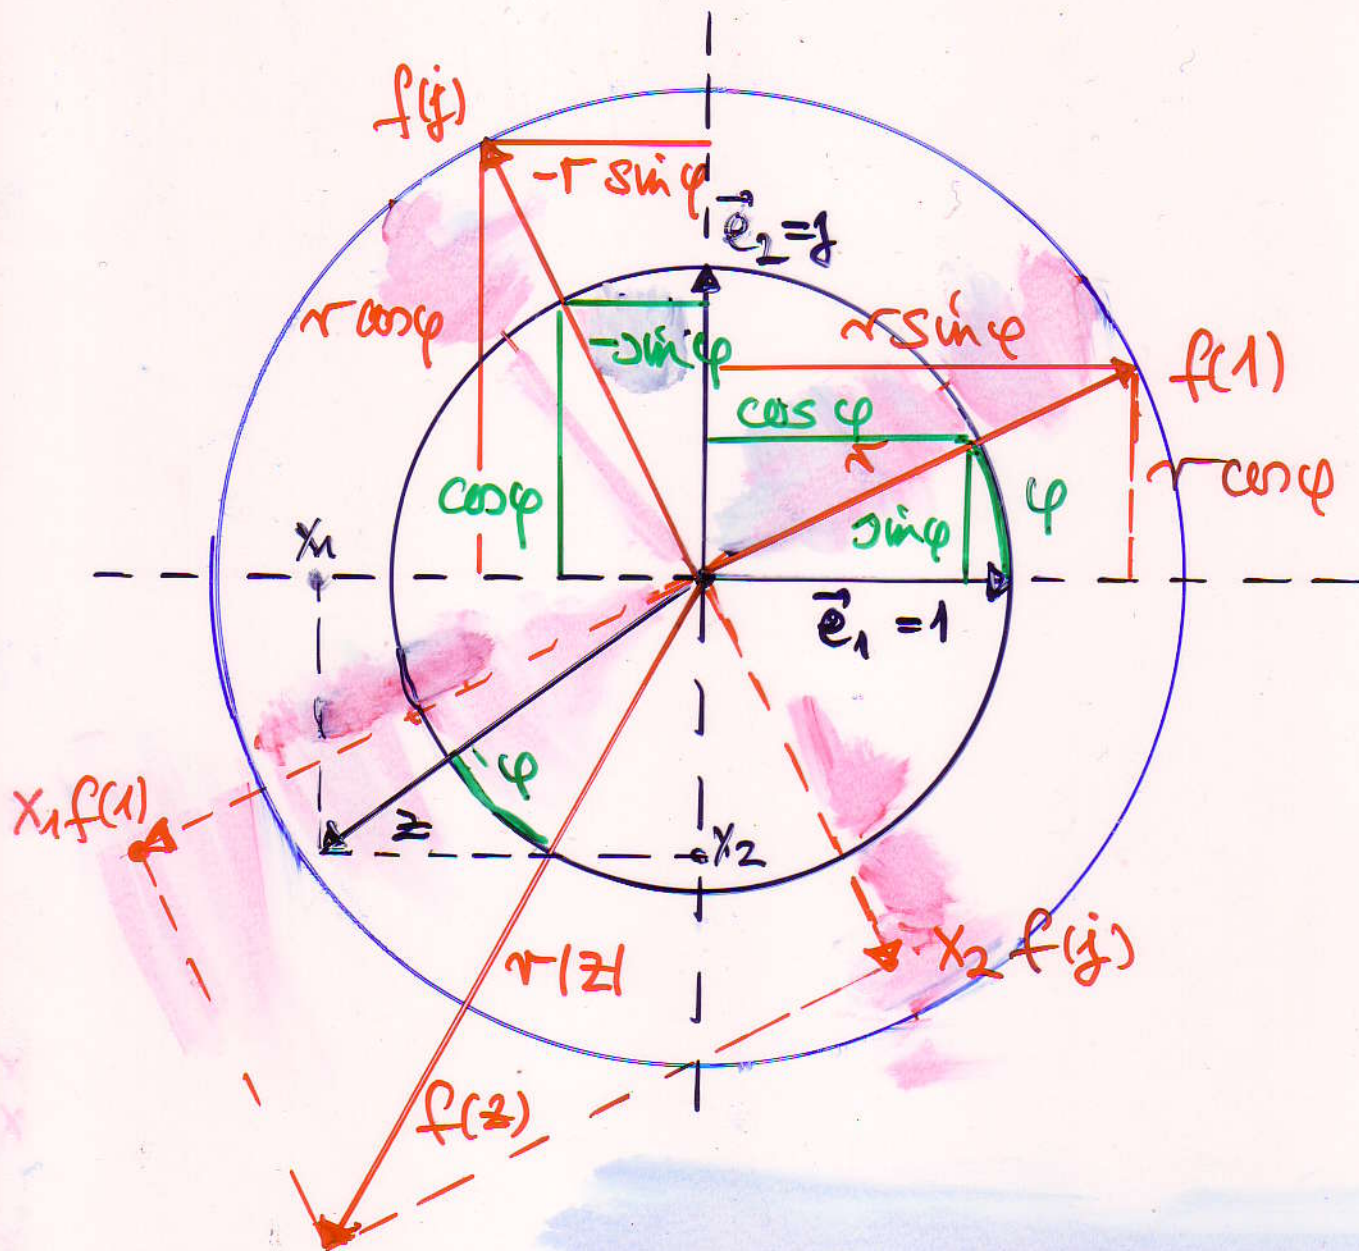 f(j)
-r sinφ
e⃗₂ = j
r cosφ
-sinφ
r sinφ
f(1)
cos φ
r
cosφ
sinφ
φ
r cosφ
x₁
e⃗₁ = 1
x₁f(1)
φ
z
x₂
r|z|
x₂ f(j)
f(z)